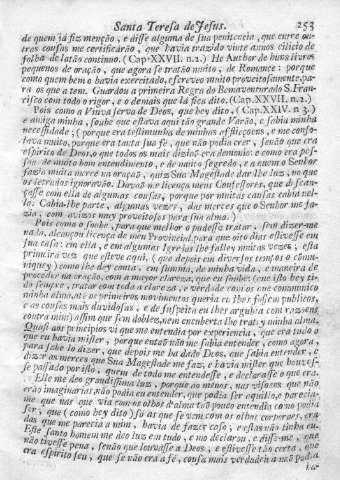 Santa Teresa de Jesus. 253
de quem já fiz menção, e disse alguma de sua penitencia, que entre ou-
tras cousas me certificarão, que havia trazido vinte annos cilicio de
folha de latão continuo. (Cap. XXVII. n. 2.) He Author de huns livros
pequenos de oração, que agora se tratão muito, de Romance: porque
como quem bem a havia exercitado, escreveo muito proveitosamente, pa-
ra os que a tem. Guardou a primeira Regra do Bemaventurado S. Fran-
cisco com todo o rigor, e o demais que lá fica dito. (Cap. XXVII. n. 1.)
Pois como a Viuva serva de Deos, que hey dito, (Cap. XXIV. n. 3.)
e amiga minha, soube que estava aqui tão grande Varão, e sabia minha
necessidade; (porque era testimunha de minhas afflicçoens, e me conso-
lava muito, porque era tanta sua fé, que não podia crer, senão que era
espirito de Deos, o que todos os mais dizião era demonio: e como era pes-
soa de muito bom entendimento, e de muito segredo, e a quem o Senhor
fazia muita mercê na oração, quiz Sua Magestade dar-lhe luz, no que
os letrados ignoravão. Davão-me licença meus Confessores, que descan-
sasse com ella de algumas cousas, porque por muitas causas cabia nel-
la. Cabia-lhe parte, algumas vezes, das merces que o Senhor me fa-
zia, com avizos muy proveitosos para sua alma.)
Pois como o soube, para que melhor o pudesse tratar, sem dizer-me
nada, alcançou licença de meu Provincial, para que oito dias estivesse em
sua casa: em ella, e em algumas Igrejas lhe falley muitas vezes, esta
primeira vez que esteve aqui, (que depois em diversos tempos o commu-
niquey) como lhe dey conta, em summa, de minha vida, e maneira de
proceder na oração, com a mayor clareza, que eu soube: que isto hey ti-
do sempre, tratar com toda a clareza, e verdade com os que communico
minha alma, até os primeiros movimentos queria eu lhes fossem publicos,
e as cousas mais duvidosas, e de suspeita eu lhes arguhia com razoens
contra mim) assim que sem doblez, nem encuberta lhe tratey minha alma.
Quasi aos principios vi que me entendia por experiencia, que era tudo o
que eu havia mister, porque então não me sabia entender, como agora,
para sabe-lo dizer, que depois me ha dado Deos, que saiba entender, e
dizer as merces que Sua Magestade me faz, e havia mister que houves-
se passado por isso, quem de todo me entendesse, e declarasse o que era.
Elle me deo grandissima luz, porque ao menos, nas visoens que não
erão imaginarias, não podia eu entender, que podia ser aquillo, e parecia-
me que nas que via com os olhos d'alma tão pouco entendia como podia
ser, que (como hey dito) só as que se vem com os olhos corporaes, era
das que me parecia a mim, havia de fazer caso; e estas não tinha eu.
Este santo homem me deo luz em tudo, e mo declarou, e disse-me, que
não tivesse pena, senão que louvasse a Deos, e estivesse tão certa, que
era espirito seu, que se não era a fé, cousa mais verdadeira não podia